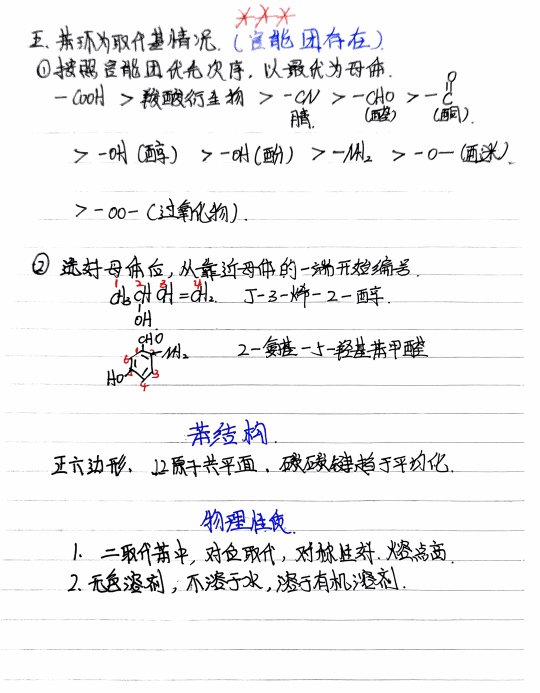 ***
五、苯环为取代基情况.(官能团存在)
①按照官能团优先次序，以最优为母体.
O
-COOH > 羧酸衍生物 > -CN > -CHO > -C-
腈 (醛) (酮).
> -OH (醇) > -OH (酚) > -NH2 > -O- (西迷).
> -OO- (过氧化物).
② 选好母体后,从靠近母体的一端开始编号.
1 2 3 4
CH3CHCH=CH2. 丁-3-烯-2-醇.
OH
CHO
1 2 NH2 2-氨基-5-羟基苯甲醛
6 3
HO 5
4
苯结构
正六边形、12原子共平面，碳碳键趋于平均化.
物理性质
1. 二取代苯中，对位取代，对称性好.熔点高
2.无色溶剂，不溶于水,溶于有机溶剂.